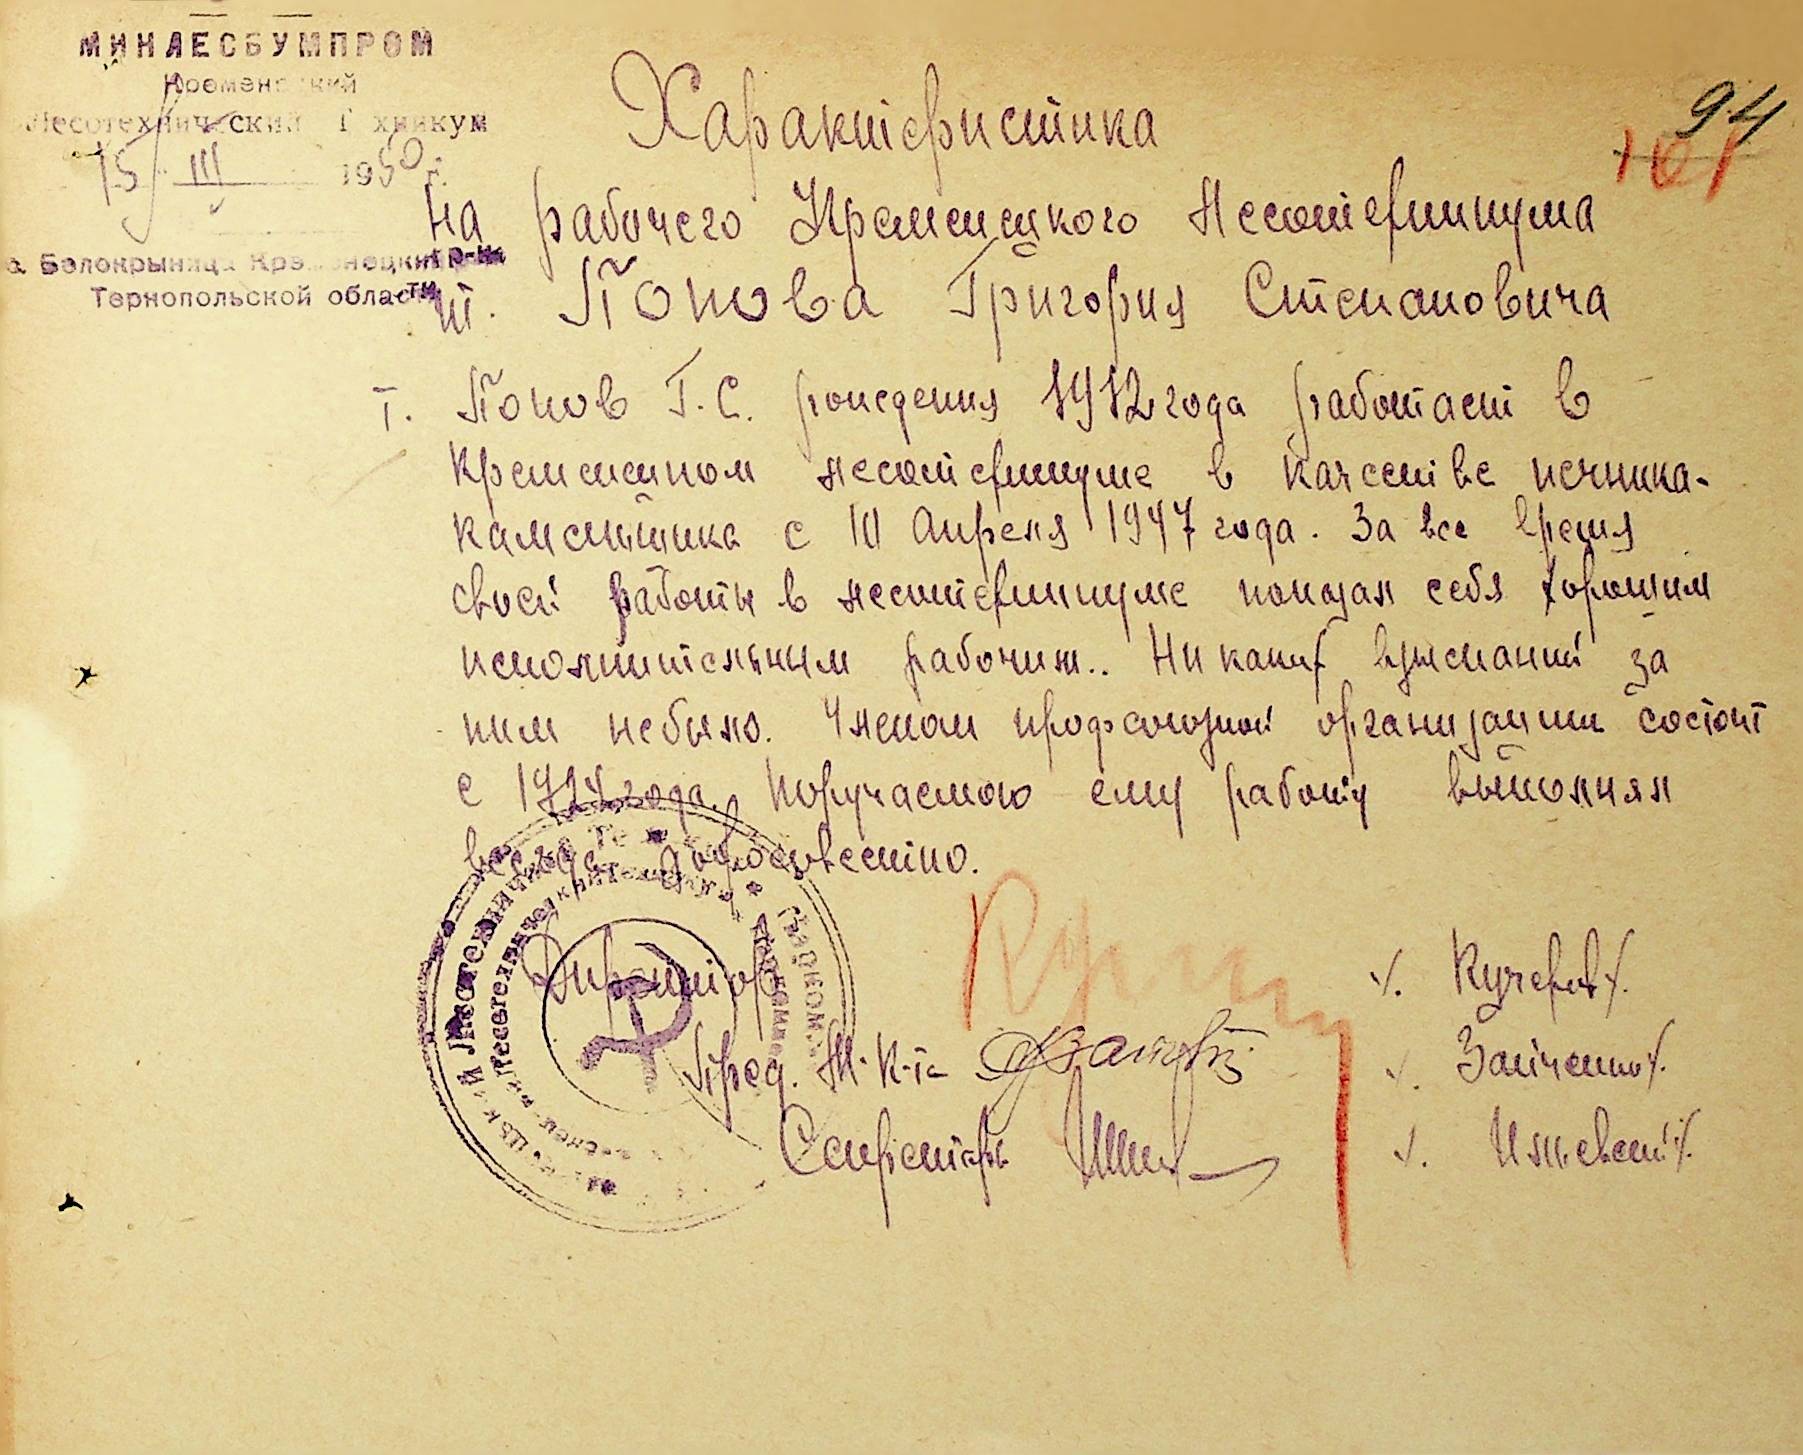 МИНЛЕСБУМПРОМ
Кременецкий
Лесотехнический Техникум
15/III 1950 г.
с. Белокрыница Кременецкий р-н
Тернопольской области
94
101
Характеристика
на рабочего Кременецкого лесотехникума
т. Попова Григория Степановича
т. Попов Г.С. рождения 1912 года работает в
кременецком лесотехникуме в качестве печника-
каменьщика с 10 апреля 1947 года. За все время
своей работы в лесотехникуме показал себя хорошим
исполнительным рабочим.. Ни каких взысканий за
ним небыло. Членом профсоюзной организации состоит
с года. Поручаемою ему работу выполнял
всегда добросовестно.
Директор /. Кучеров /.
Пред. М. К-та /. Зайченко /.
Секретарь /.